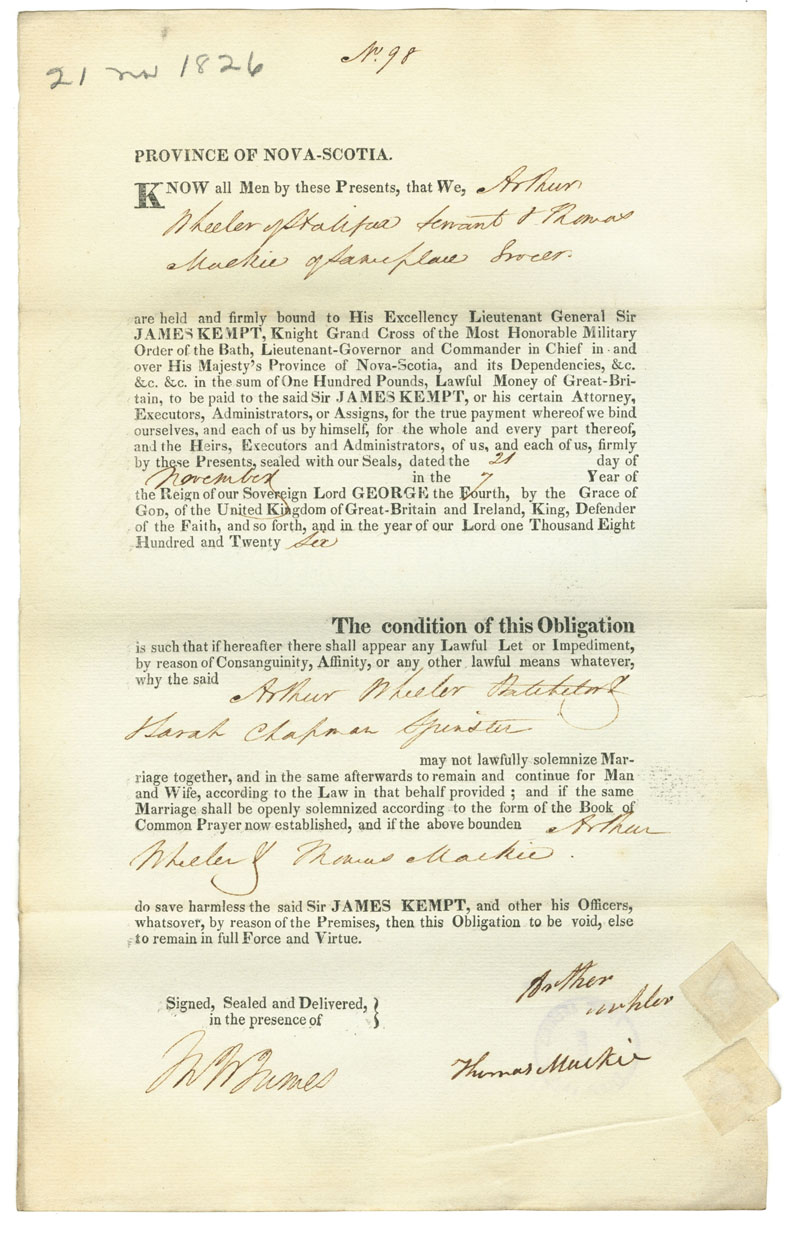 No. 98
21 nov 1826
PROVINCE OF NOVA-SCOTIA.
KNOW all Men by these Presents, that We, Arthur
Wheeler of Halifax Servant & Thomas
Mackie of same place Grocer.
are held and firmly bound to His Excellency Lieutenant General Sir
JAMES KEMPT, Knight Grand Cross of the Most Honorable Military
Order of the Bath, Lieutenant-Governor and Commander in Chief in and
over His Majesty's Province of Nova-Scotia, and its Dependencies, &c.
&c. &c. in the sum of One Hundred Pounds, Lawful Money of Great-Bri-
tain, to be paid to the said Sir JAMES KEMPT, or his certain Attorney,
Executors, Administrators, or Assigns, for the true payment whereof we bind
ourselves, and each of us by himself, for the whole and every part thereof,
and the Heirs, Executors and Administrators, of us, and each of us, firmly
by these Presents, sealed with our Seals, dated the 21 day of
November in the 7 Year of
the Reign of our Sovereign Lord GEORGE the Fourth, by the Grace of
GOD, of the United Kingdom of Great-Britain and Ireland, King, Defender
of the Faith, and so forth, and in the year of our Lord one Thousand Eight
Hundred and Twenty Six
The condition of this Obligation
is such that if hereafter there shall appear any Lawful Let or Impediment,
by reason of Consanguinity, Affinity, or any other lawful means whatever,
why the said Arthur Wheeler Batchelor &
Sarah Chapman Spinster
may not lawfully solemnize Mar-
riage together, and in the same afterwards to remain and continue for Man
and Wife, according to the Law in that behalf provided ; and if the same
Marriage shall be openly solemnized according to the form of the Book of
Common Prayer now established, and if the above bounden Arthur
Wheeler & Thomas Mackie.
do save harmless the said Sir JAMES KEMPT, and other his Officers,
whatsover, by reason of the Premises, then this Obligation to be void, else
to remain in full Force and Virtue.
Signed, Sealed and Delivered, }
in the presence of
Arther
Thomas Mackie
James